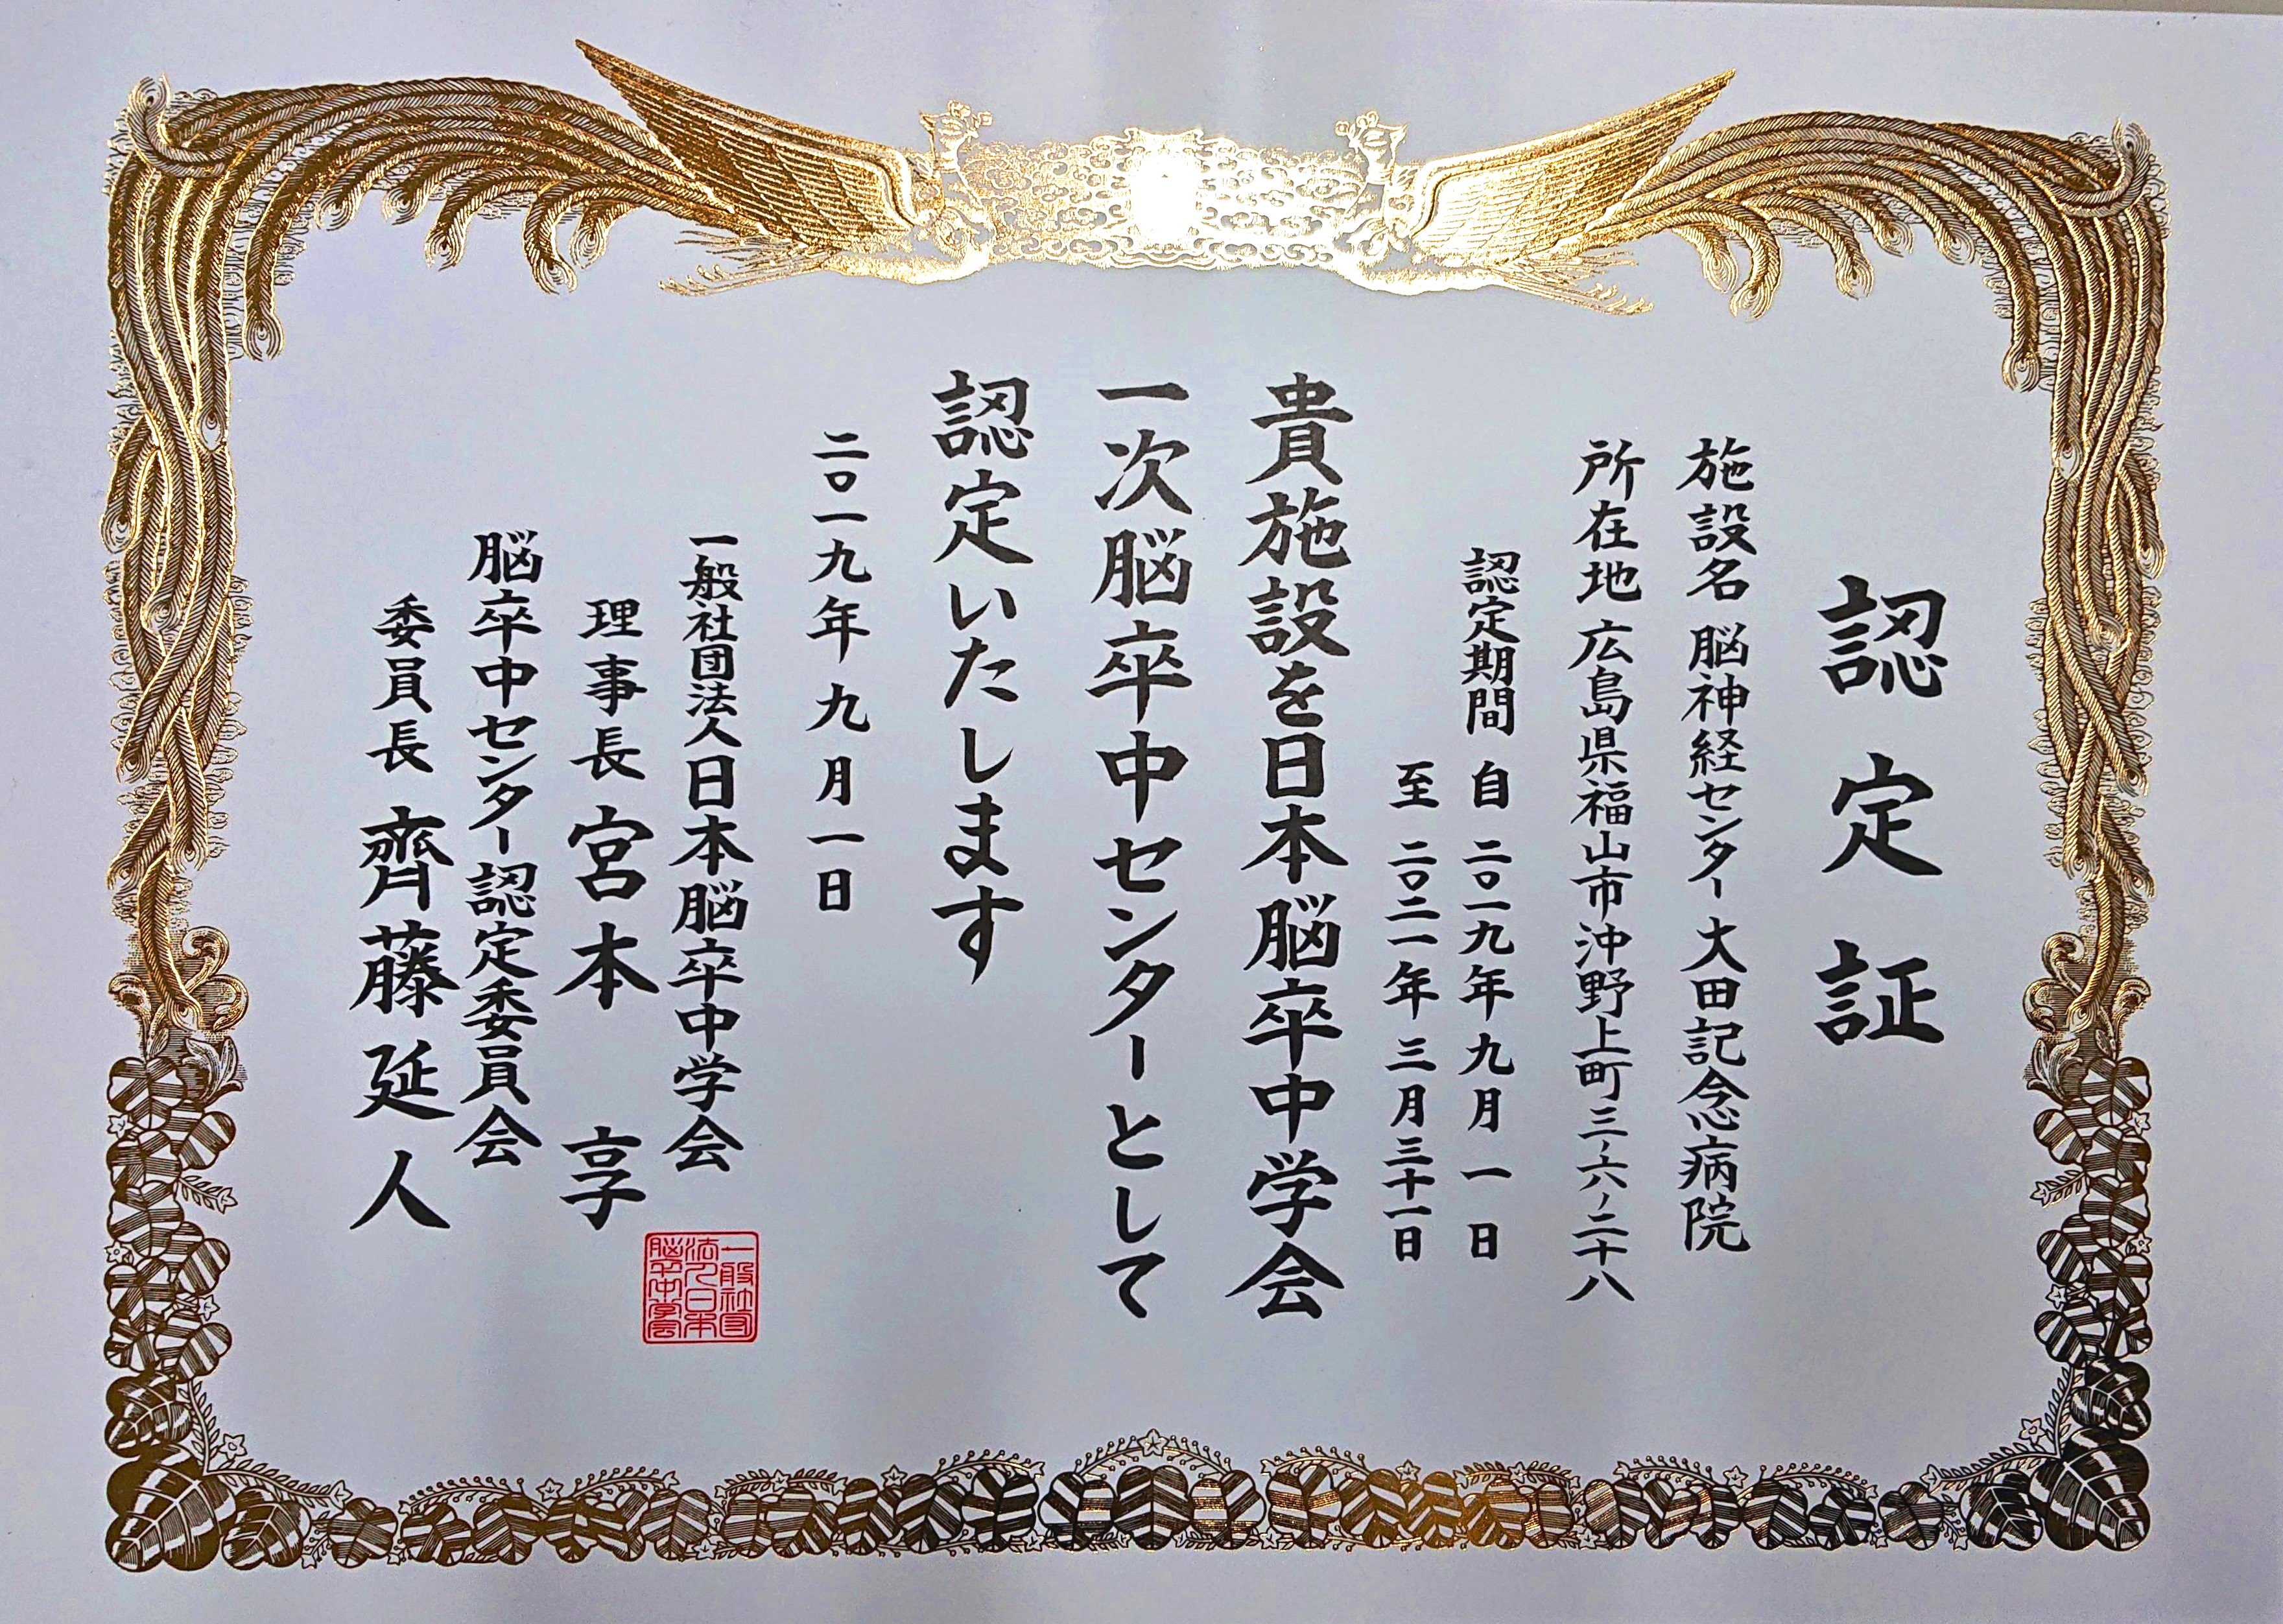 認定証
施設名 脳神経センター大田記念病院
所在地 広島県福山市沖野上町三ノ六ノ二十八
認定期間 自 二〇一九年九月一日
至 二〇二一年三月三十一日
貴施設を日本脳卒中学会
一次脳卒中センターとして
認定いたします
二〇一九年九月一日
一般社団法人日本脳卒中学会
理事長 宮本 享
脳卒中センター認定委員会
委員長 齊藤延人
一般社団
法人日本
脳卒中学会